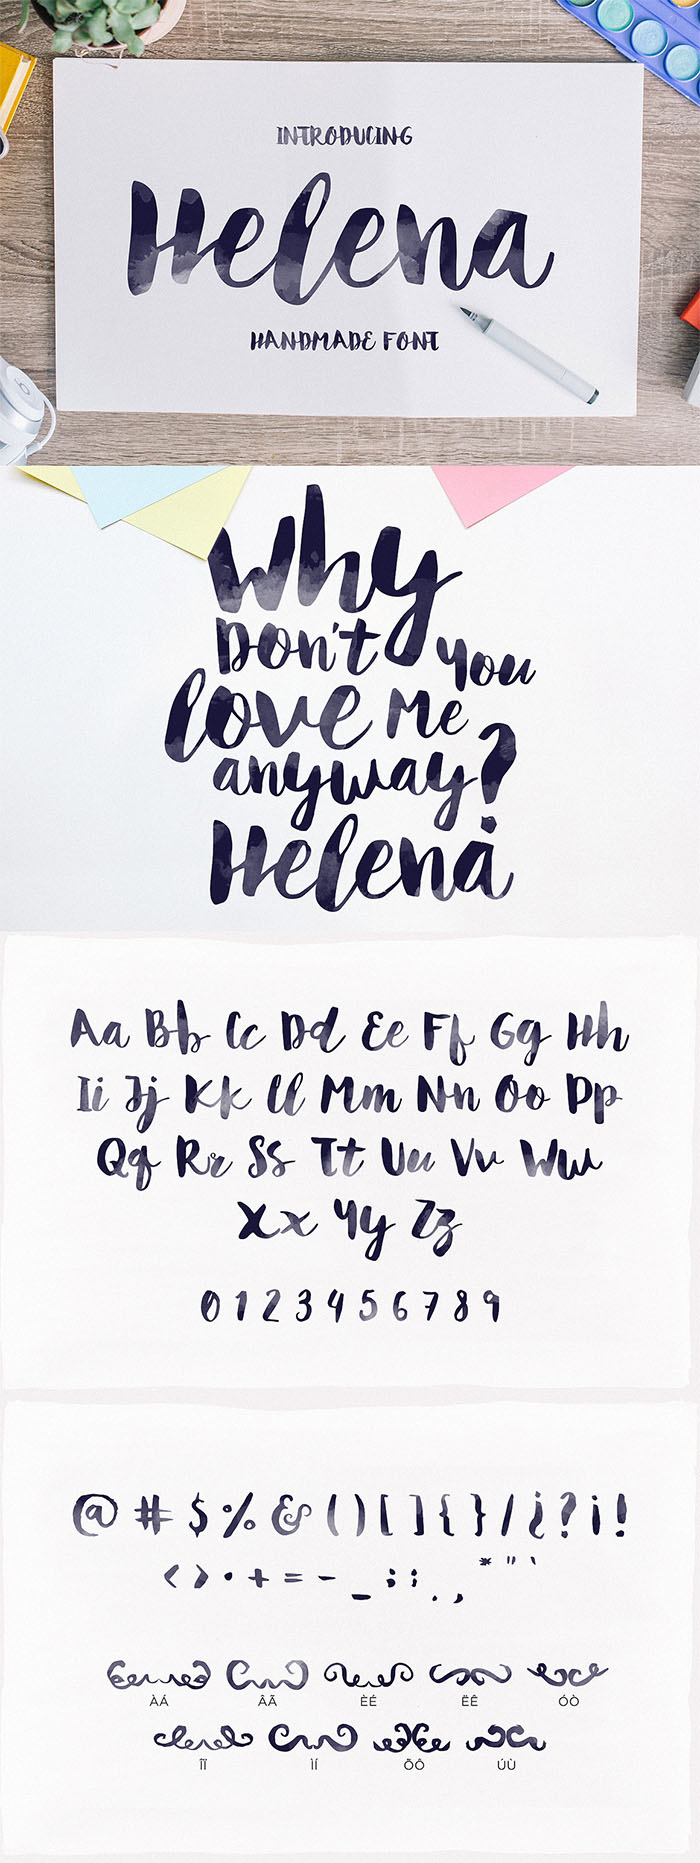 INTRODUCING
Helena
HANDMADE FONT
Why
Don't you
love me
anyway?
Helena
Aa Bb Cc Dd Ee Ff Gg Hh
Ii Jj Kk Ll Mm Nn Oo Pp
Qq Rr Ss Tt Uu Vv Ww
Xx Yy Zz
0 1 2 3 4 5 6 7 8 9
@ # $ % & ( ) [ ] { } / ¿ ? ¡ !
< > • + = - _ ; : . , * " '
ÀÁ ÂÃ ÈÉ ËÊ ÓÒ
ÎÏ ÌÍ ÕÔ ÚÙ